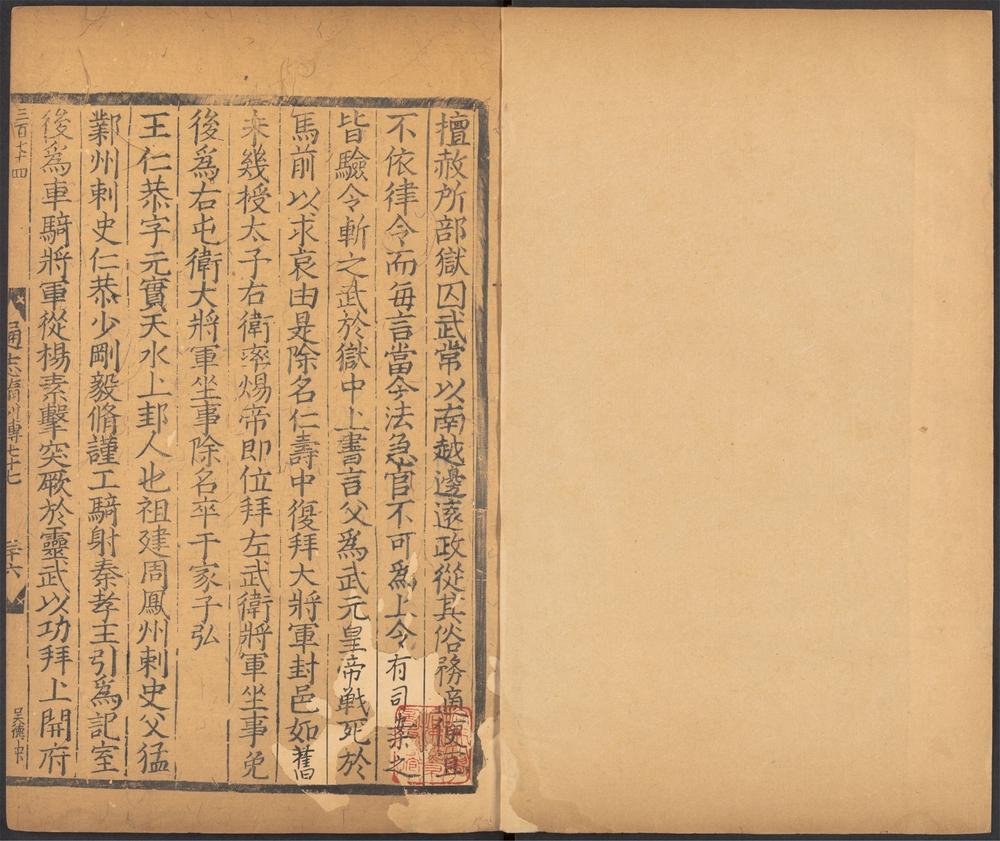 擅赦所部獄囚武常以南越邊遠政從其俗務適便宜
不依律令而每言當今法急官不可爲上令有司案之
皆驗令斬之武於獄中上書言父爲武元皇帝戦死於
馬前以求哀由是除名仁壽中復拜大將軍封邑如舊
未幾授太子右衛率煬帝即位拜左武衛將軍坐事免
後爲右屯衛大將軍坐事除名卒于家子弘
王仁恭字元實天水上邽人也祖建周鳳州刺史父猛
鄴州刺史仁恭少剛毅脩謹工騎射秦孝王引爲記室
後爲車騎將軍從楊素擊突厥於靈武以功拜上開府
三百七十四
通志 列傳七十七